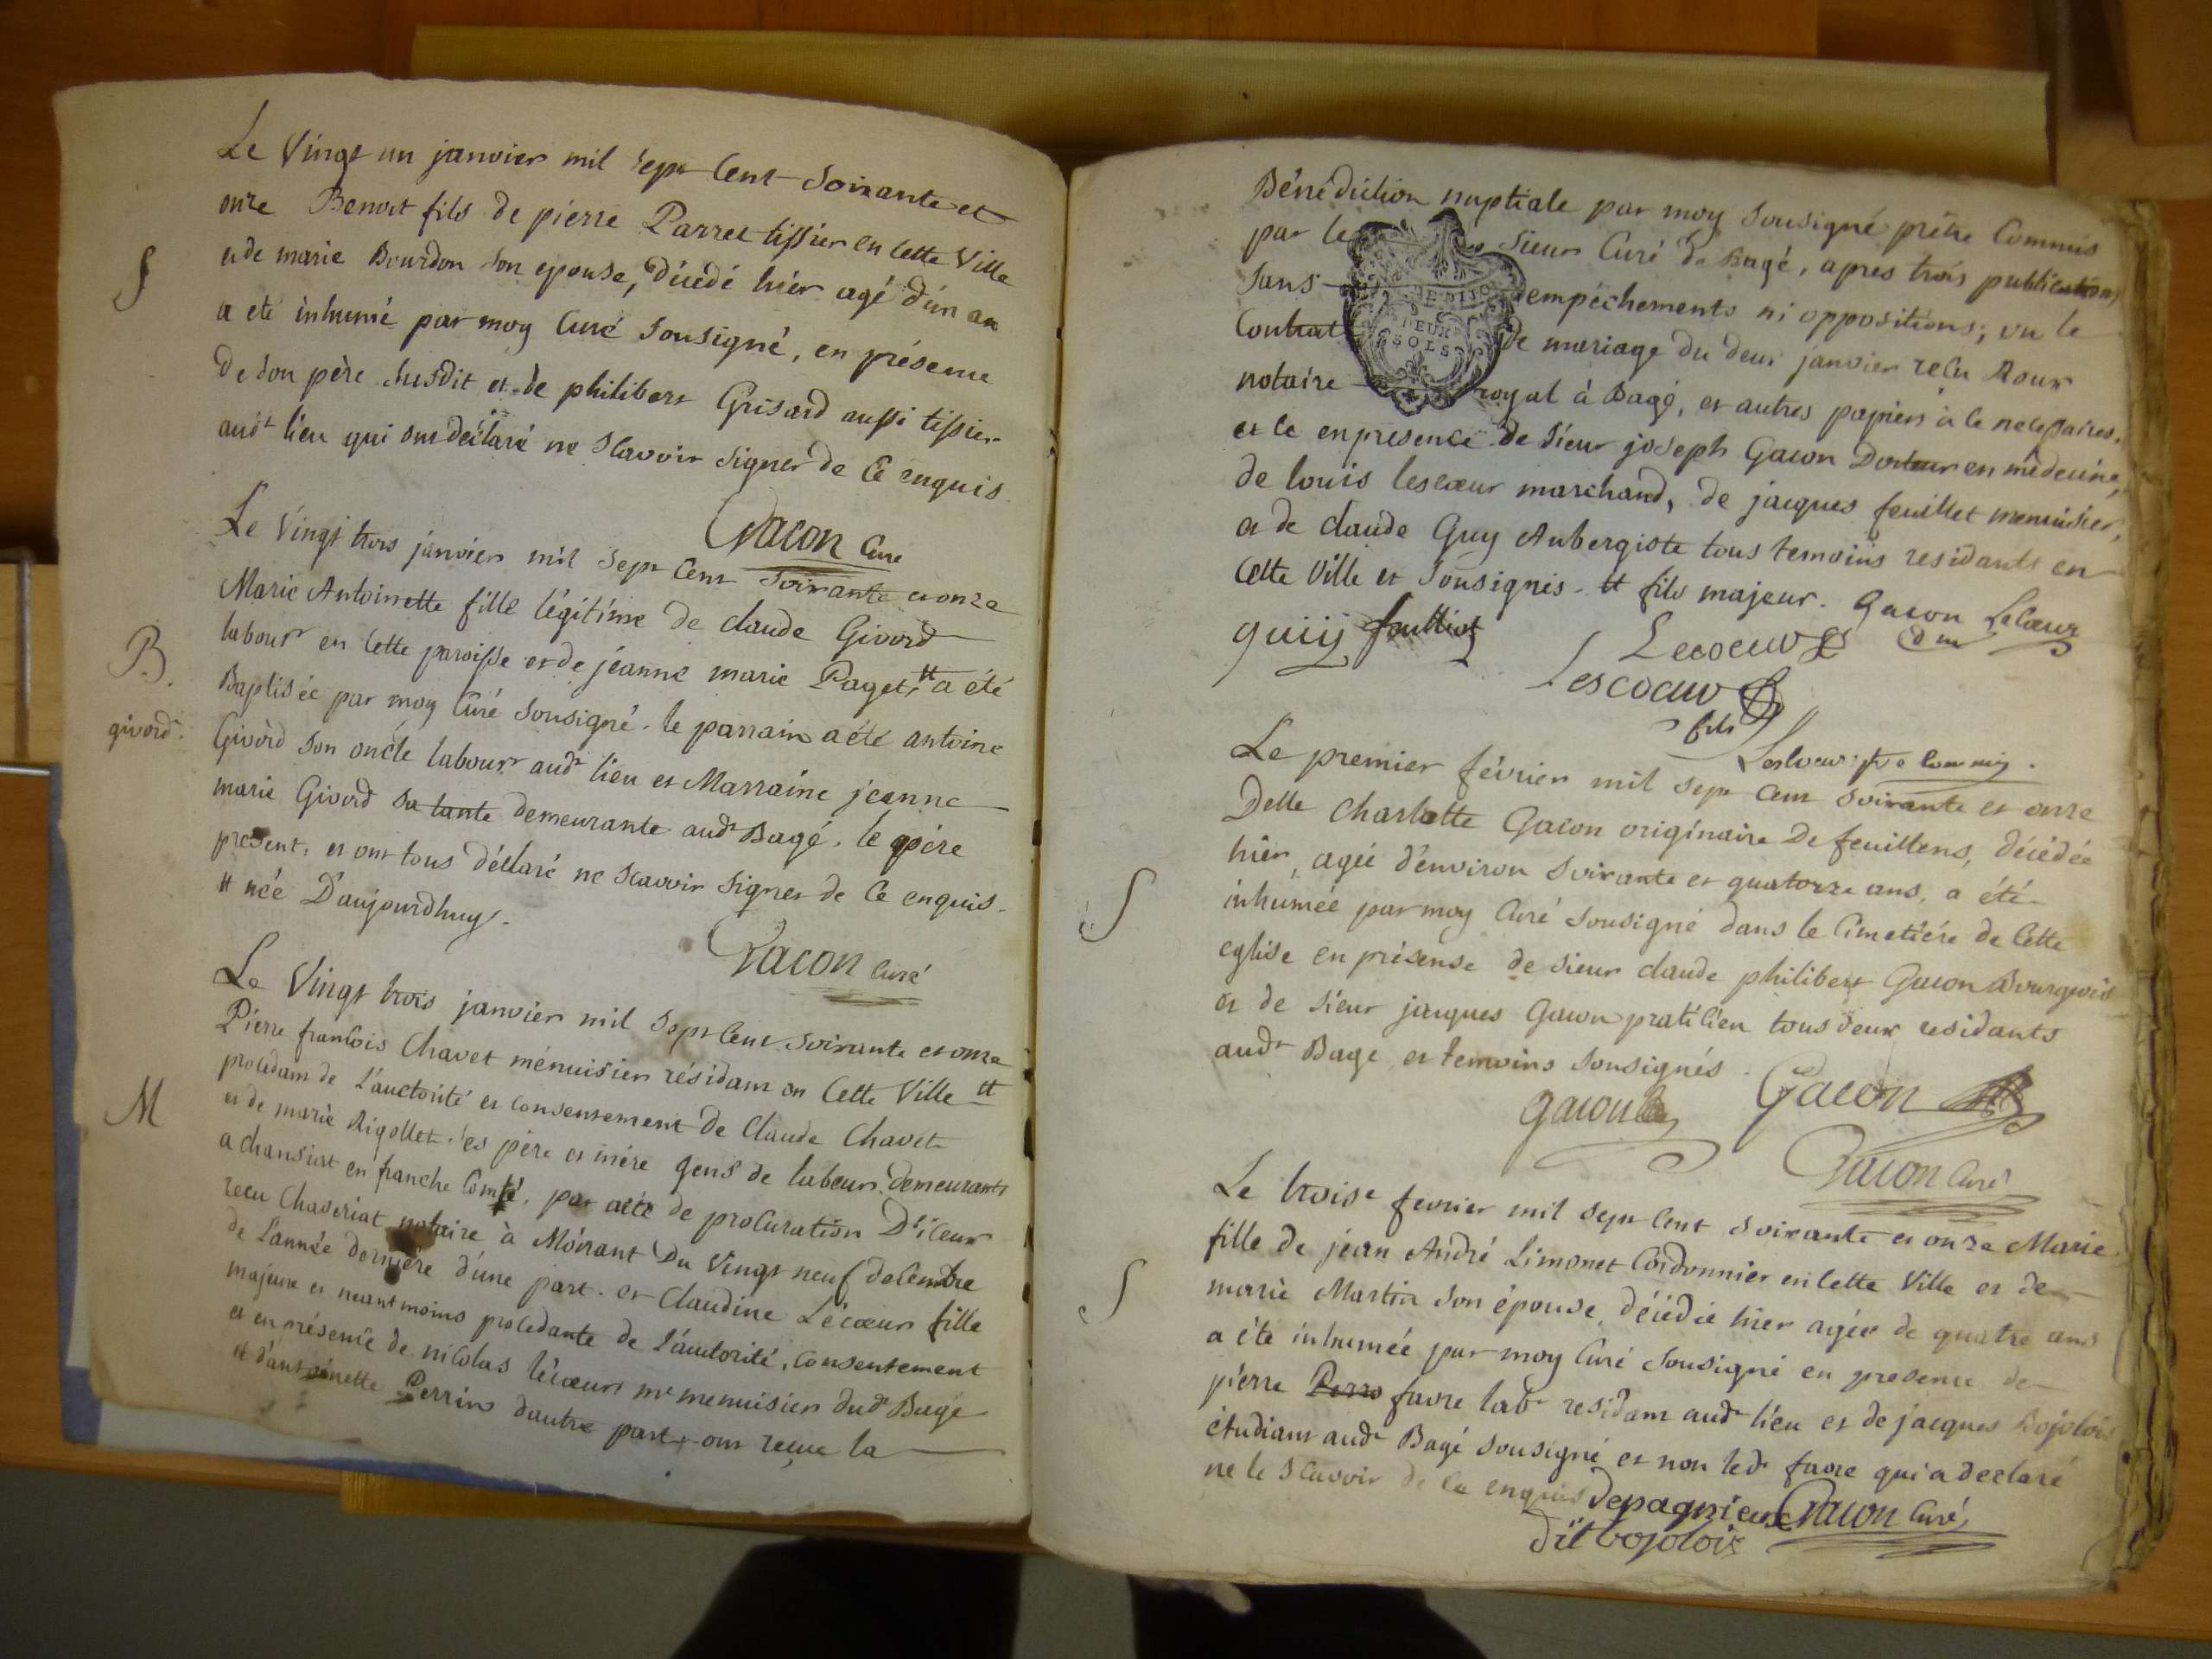 Le Vingt un janvier mil sept Cent Soixante et
onze Benoit fils de pierre Parret tissier en Cette Ville
S
et de marie Bourdon son epouse, décédé hiér agé d'un an
a eté inhumé par moy Curé Sousigné, en présence
de son père susdit et de philibert Grisard aussi tissier
audt lieu qui ont déclaré ne Scavoir signer de Ce enquis
Gacon Curé
Le Vingt trois janvier mil Sept Cent Soixante et onze
Marie Antoinette fille légitime de claude Givord
labourr en Cette paroisse et de jéanne marie Paget, # a été
B.
Baptisée par moy Curé Sousigné. le parrain a été antoine
givord.
Givord son oncle labourr audt lieu et Marraine jeanne
marie Givord sa tante demeurante audt Bagé. le père
present, et ont tous déclaré ne scavoir signer de Ce enquis.
# née D'aujourdhuy.
Gacon Curé
Le Vingt trois janvier mil Sept Cent Soixante et onze
Pierre francois Chavet ménuisier résidant en Cette Ville #
procedant de L'auctorité et consentement de Claude Chavet
M
et de marie Rigollet ses père et mère gens de labeur demeurants
a chansiat en franche Comté, par acte de procuration D'iceux
recu Chaveriat notaire à Moirant Du Vingt neuf decembre
de L'année dernière d'une part. et Claudine Lécœur fille
majeure et neantmoins procedante de l'autorité, Consentement
et en présence de nicolas lécœur mre menuisier dudt Bagé
et d'antoinette Perrin d'autre part, ont reçue la
Bénédiction nuptiale par moy Sousigné prêtre Commis
par le Sieur Curé de Bagé, apres trois publications
Sans empêchements ni oppositions; vu le
DE DIJON
DEUX
SOLS
Contrat de mariage du deux janvier recu Roux
notaire royal à Bagé, et autres papiers à ce necessaires.
et ce en presence de Sieur joseph Gacon Docteur en médecine,
de louis lescœur marchand, de jacques feuillet menuisier,
et de claude Guy Aubergiste tous temoins residants en
Cette Ville et Sousignés. # fils majeur. Gacon Lecœur
guiy feulliet Lecoeur d m
Lescoeur
fils
Lescoeur ptre commis.
Le premier février mil sept Cent soixante et onze
Delle Charlotte Gacon originaire De feuillens, décédée
hier, agée d'environ Soixante et quatorze ans, a été
S
inhumée par moy Curé Sousigné dans le Cimetière de Cette
eglise en présense de sieur claude philibert Gacon Bourgeois
et de sieur jacques Gacon praticien tous deux residants
audt Bagé et temoins Sousignés.
Gacon Gacon
Gacon Curé
Le troise fevrier mil sept Cent soixante et onze Marie
fille de jean André Limonet Cordonnier en Cette Ville et de
S
marie Martin son épouse, décédée hier agée de quatre ans
a été inhumée par moy Curé Sousigné en presence de
pierre favre labr residant audt lieu et de jacques Bojolois
étudiant audt Bagé Sousigné et non ledt favre qui a declaré
ne le Scavoir de Ce enquis depagnieux Gacon Curé
dit bojolois